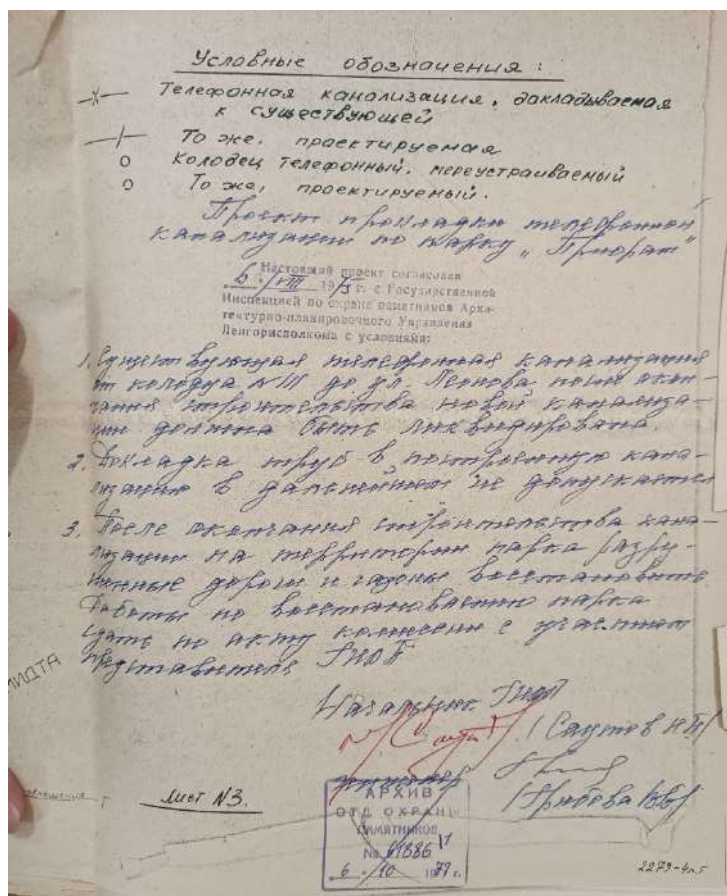 Условные обозначения:
Телефонная канализация, докладываемая
к существующей
То же, проектируемая
Колодец телефонный, переустраиваемый
То же, проектируемый.
Проект прокладки телефонной
канализации по парку „Приорат"
Настоящий проект согласован
6 / VIII 19 г. с Государственной
Инспекцией по охране памятников Архи-
тектурно-планировочного Управления
Ленгорисполкома с условиями:
1. Существующая телефонная канализация
от колодца № до ул. после окон-
чания строительства новой канализа-
ции должна быть ликвидирована.
2. Докладка труб в построенную кана-
лизацию в дальнейшем не допускается
3. После окончания строительства кана-
лизации на территории парка разру-
шенные дороги и газоны восстановить
Работы по восстановлению парка
сдать по акту комиссии с участием
представителя ГИОП
Начальник ГИОП
/Саутов ИП/
инженер
/Грибова
МИДТА
Лист №3.
АРХИВ
ОТД. ОХРАНЫ
ПАМЯТНИКОВ
№ 61886
6 - 10 1977 г.
2279-4л5